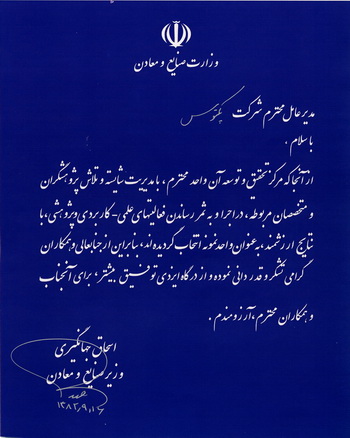 وزارت صنایع و معادن
مدیر عامل محترم شرکت
با سلام .
از آنجا که مرکز تحقیق و توسعه آن واحد محترم ، با مدیریت شایسته و تلاش پژوهشگران
و متخصصان مربوطه ، در اجرا و به ثمر رساندن فعالیتهای علمی - کاربردی و پژوهشی ، با
نتایج ارزشمند ، به عنوان واحد نمونه انتخاب گردیده اند ، بنابراین از جنابعالی و همکاران
گرامی تشکر و قدردانی نموده و از درگاه ایزدی توفیق بیشتر ، برای آنجناب
و همکاران محترم ، آرزومندم .
اسحاق جهانگیری
وزیر صنایع و معادن